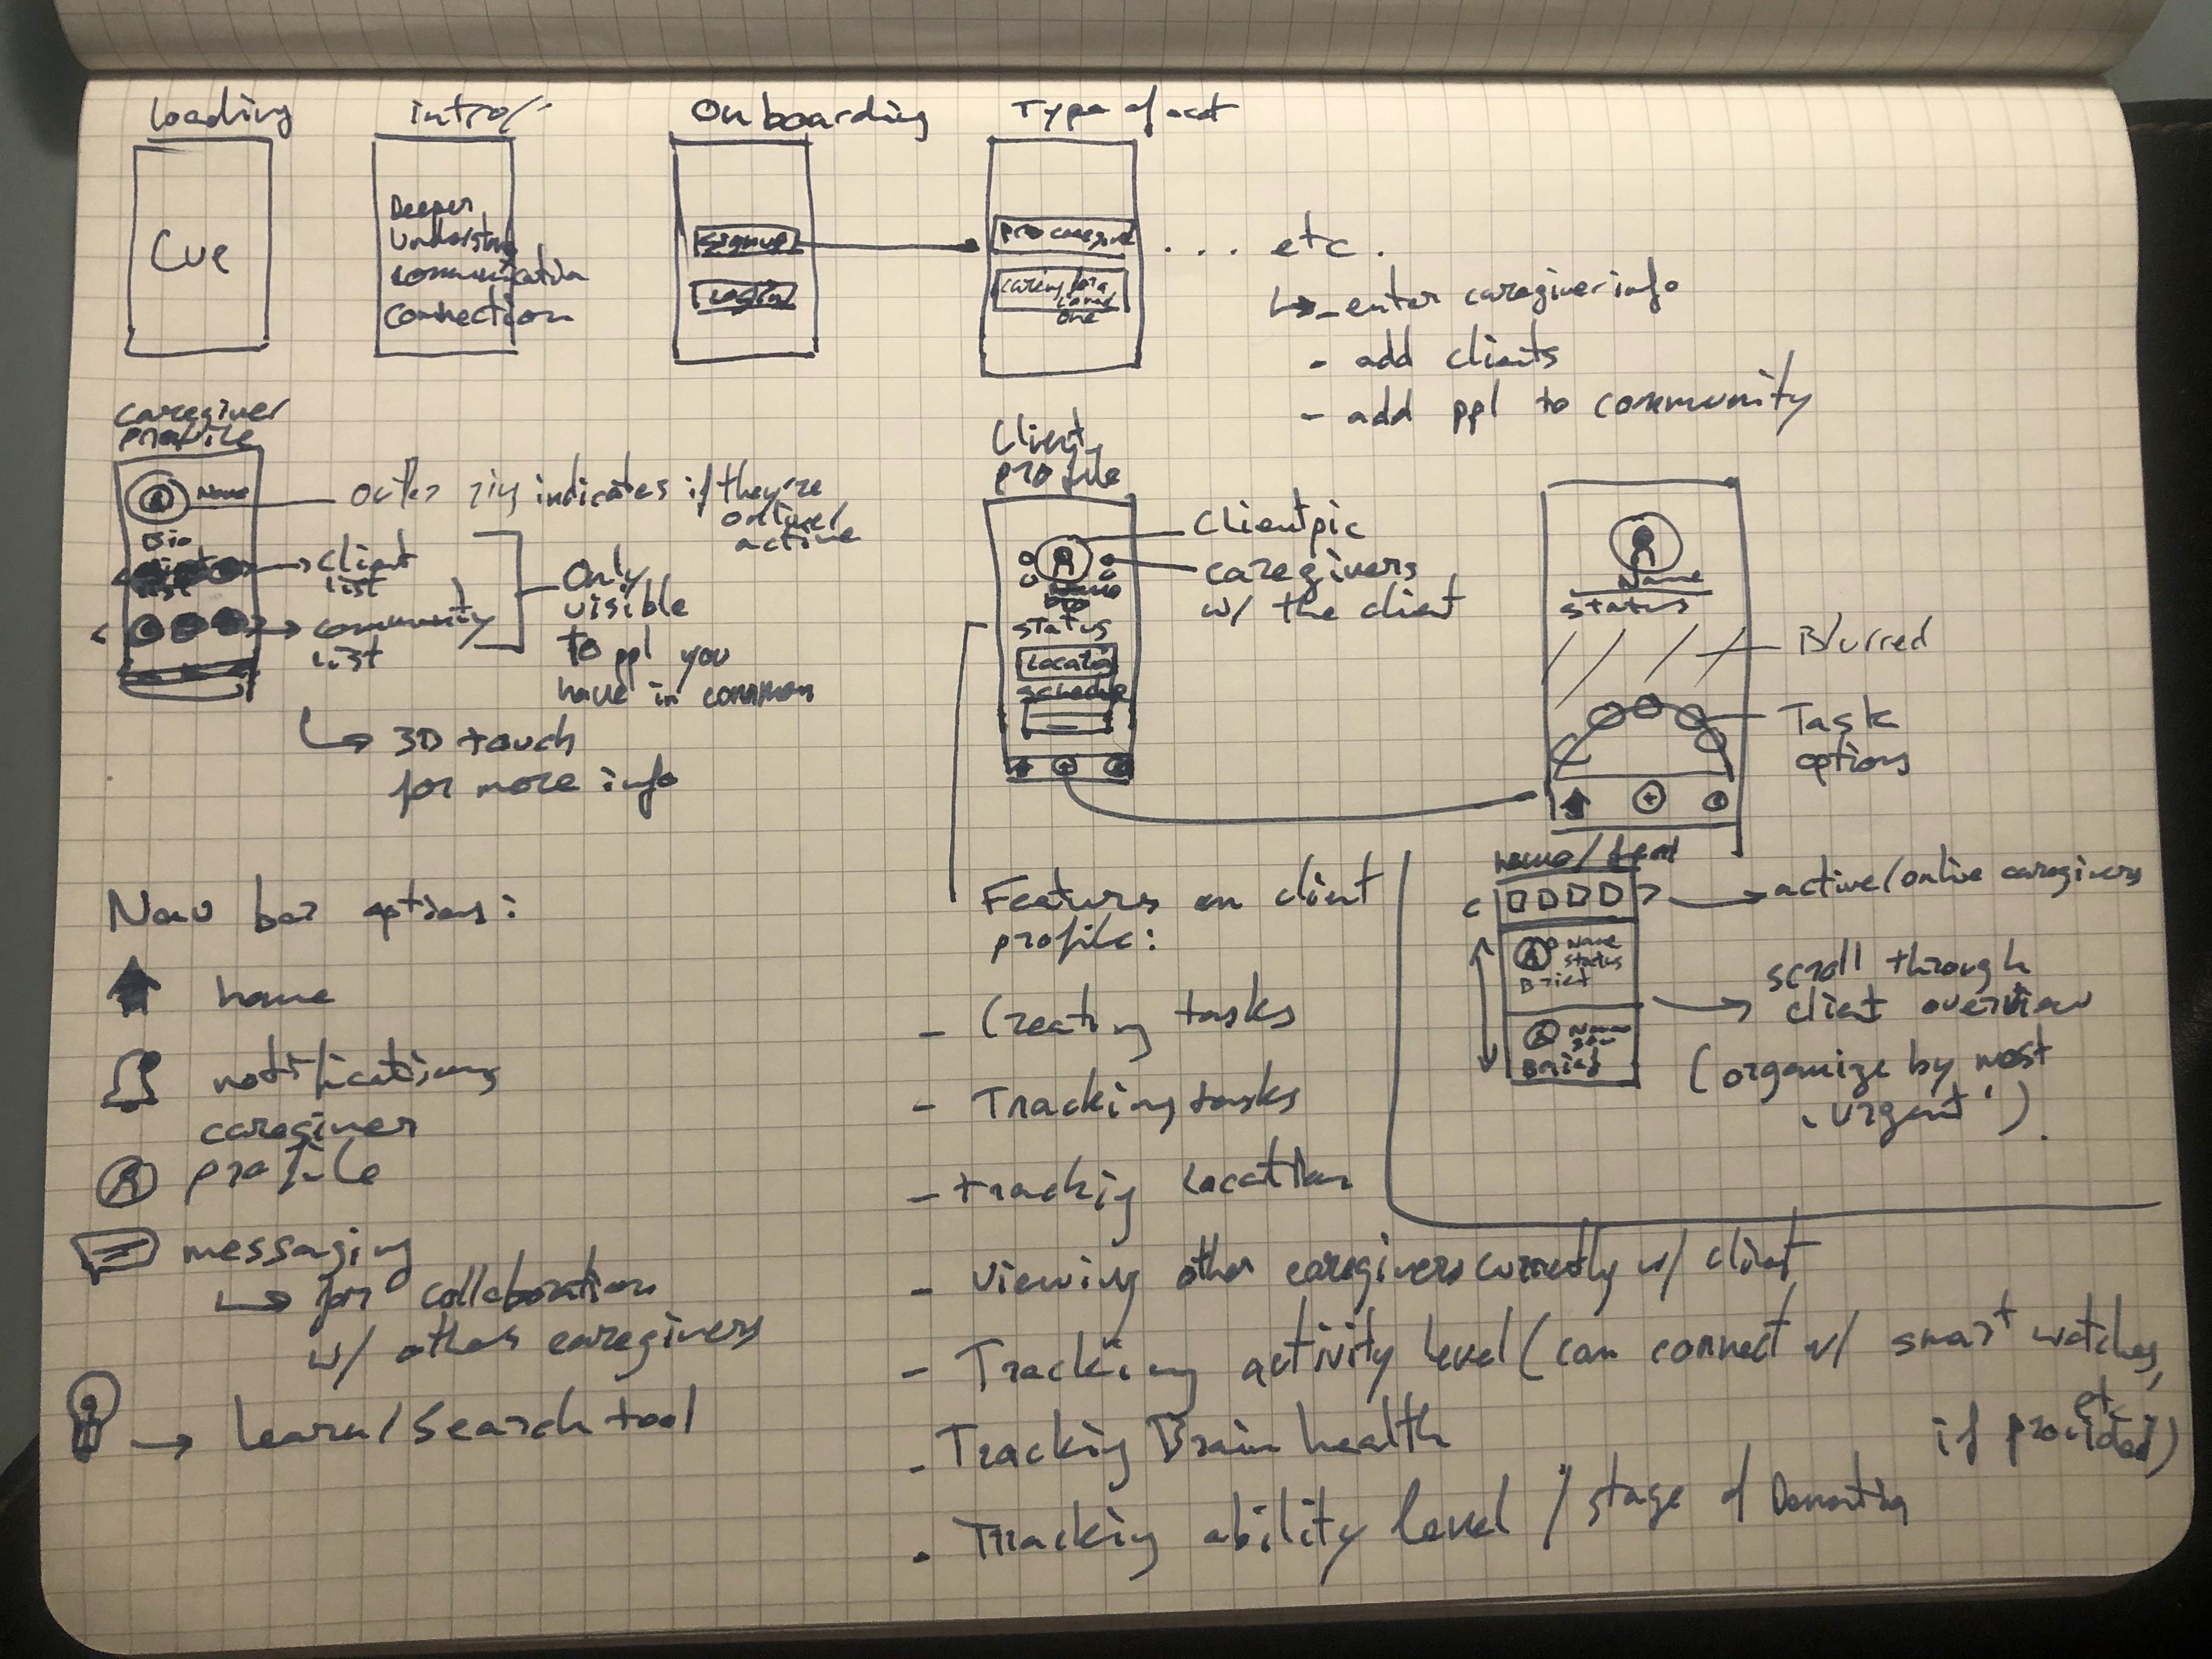 Loading
intro/
Onboarding
Type of acct
Cue
Deeper
Understndg
communication
Connection
signup
Login
pro caregiver
caring for a
loved
one
. . . etc.
↳ - enter caregiver info
- add clients
- add ppl to community
caregiver
profile
Name
outer ring indicates if they're
online/
active
Bio
client
list
→ client
list
→ community
list
Only
visible
to ppl you
have in common
↳ 3D touch
for more info
Client
profile
Clientpic
caregivers
w/ the client
Name
Status
Location
Schedule
Name
Status
Blurred
Task
options
Nav bar options:
home
notifications
caregiver
profile
messaging
↳ for collaboration
w/ other caregivers
→ learn/search tool
Features on client
profile:
- Creating tasks
- Tracking tasks
- tracking location
- viewing other caregivers currently w/ client
- Tracking activity level (can connect w/ smart watches,
etc
if provided)
- Tracking Brain health
- Tracking ability level / stage of Dementia
home/feed
→ active/online caregivers
Name
status
Brief
Name
Brief
→ scroll through
client overview
(organize by most
'urgent')